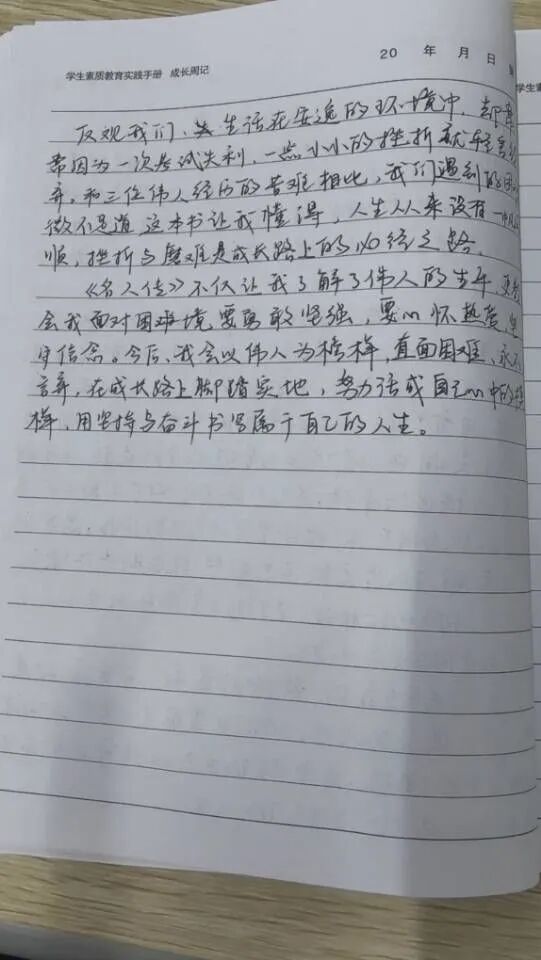 20 年 月 日
学生素质教育实践手册 成长周记
学生素
反观我们,生活在安逸的环境中,却常
常因为一次考试失利,一点小小的挫折就轻言
弃。和三位伟人经历的苦难相比,我们遇到的困
微不足道。这本书让我懂得,人生从来没有一帆风
顺,挫折与磨难是成长路上的必经之路。
《名人传》不仅让我了解了伟人的生平,更教
会我面对困难境要勇敢坚强,要心怀热爱,坚
守信念。今后,我会以伟人为榜样,直面困难,永不
言弃,在成长路上脚踏实地,努力活成自己心中的榜
样,用坚持与奋斗书写属于自己的人生。